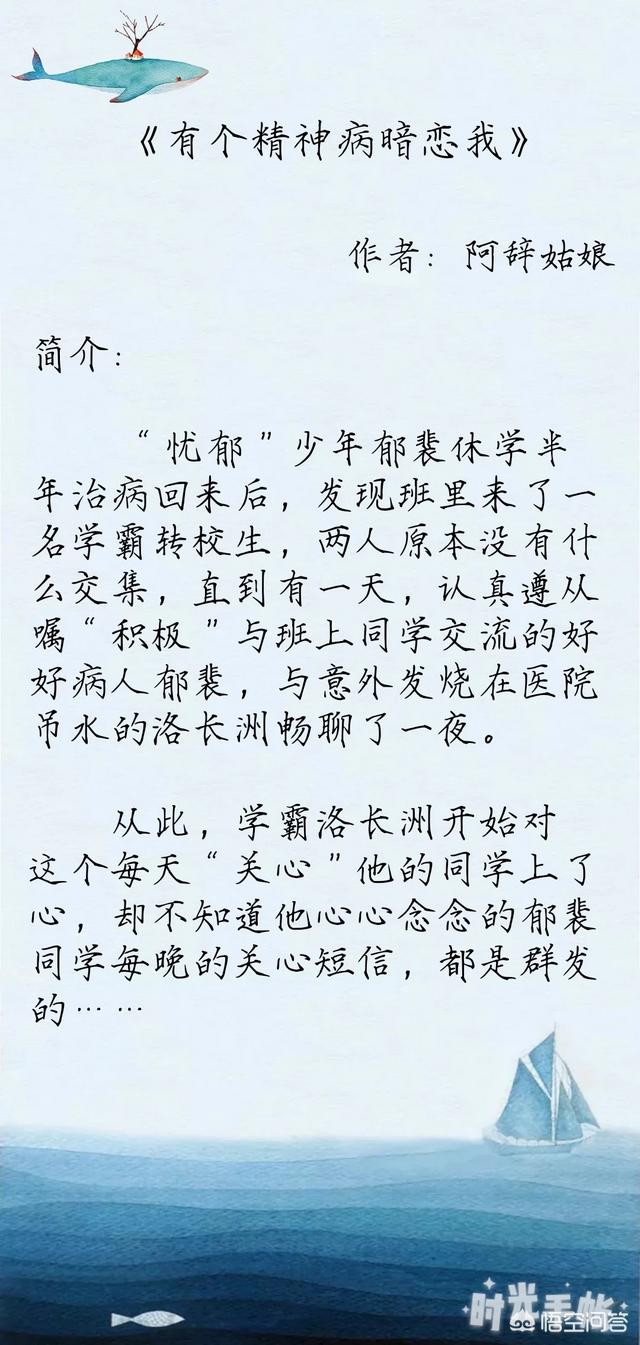 《有个精神病暗恋我》
作者：阿辞姑娘
简介：
“忧郁”少年郁裴休学半
年治病回来后，发现班里来了一
名学霸转校生，两人原本没有什
么交集，直到有一天，认真遵从
嘱“积极”与班上同学交流的好
好病人郁裴，与意外发烧在医院
吊水的洛长洲畅聊了一夜。
从此，学霸洛长洲开始对
这个每天“关心”他的同学上了
心，却不知道他心心念念的郁裴
同学每晚的关心短信，都是群发
的……
时光手帐
悟空问答